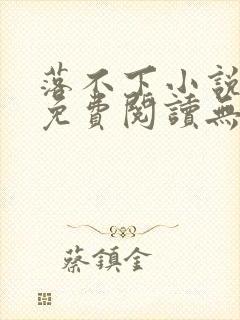 落不下小說
免費閱讀無
蔡鎮金